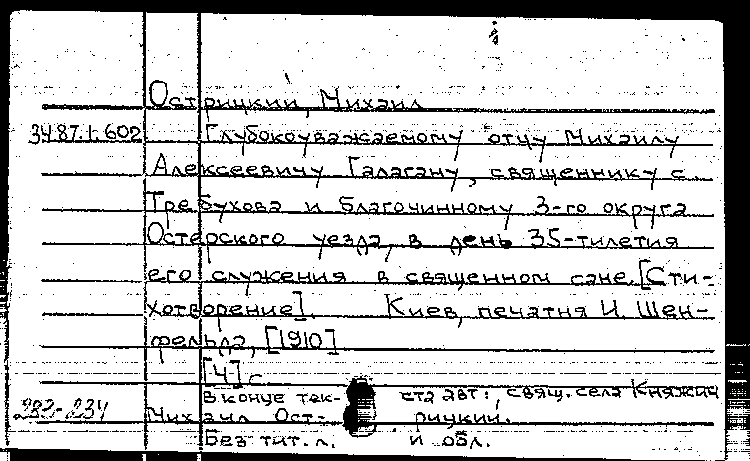 Острицкий, Михаил
34 87.1.602 Глубокоуважаемому отцу Михаилу
Алексеевичу Галагану, священнику с.
Требухова и благочинному 3-го округа
Остерского уезда, в день 35-тилетия
его служения в священном сане. [Сти-
хотворение]. Киев, печатня И. Шен-
фельда, [1910]
[4] с.
В конце тек- ста авт: свящ. села Княжич
282-234 Михаил Ост- рицкий.
Без тит. л. и обл.